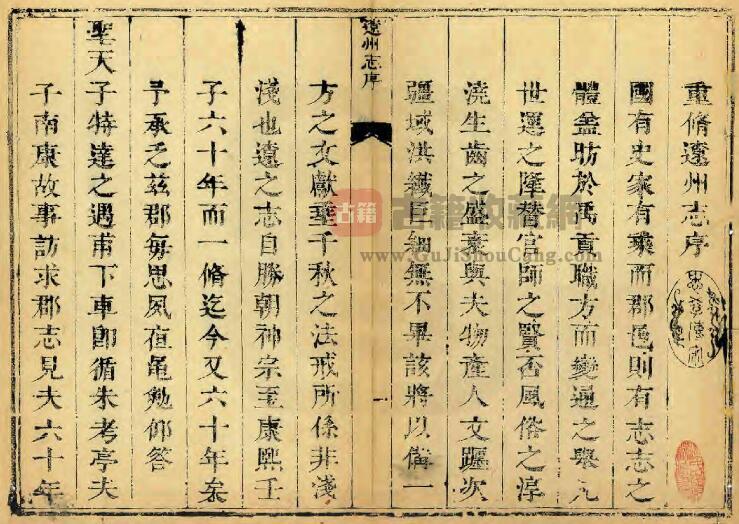 重脩遼州志序
國有史家有乘而郡邑則有志志之
體盖昉於禹貢職方而變通之舉凡
世運之隆替官師之賢否風俗之淳
澆生齒之盛衰與夫物產人文躔次
疆域洪纖巨細無不畢該將以備一
遼州志序
方之文獻垂千秋之法戒所係非淺
淺也遼之志自勝朝神宗至康熙壬
子六十年而一脩迄今又六十年矣
予承乏兹郡每思夙夜黽勉仰答
聖天子特達之遇甫下車即循朱考亭夫
子南康故事訪求郡志見夫六十年
古籍 古籍收藏網
www.GuJiShouCang.com